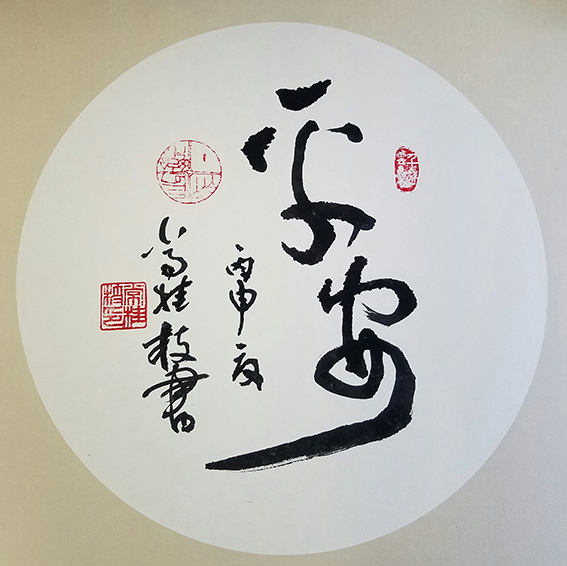 平安
丙申夏
常桂枝書
常桂枝印